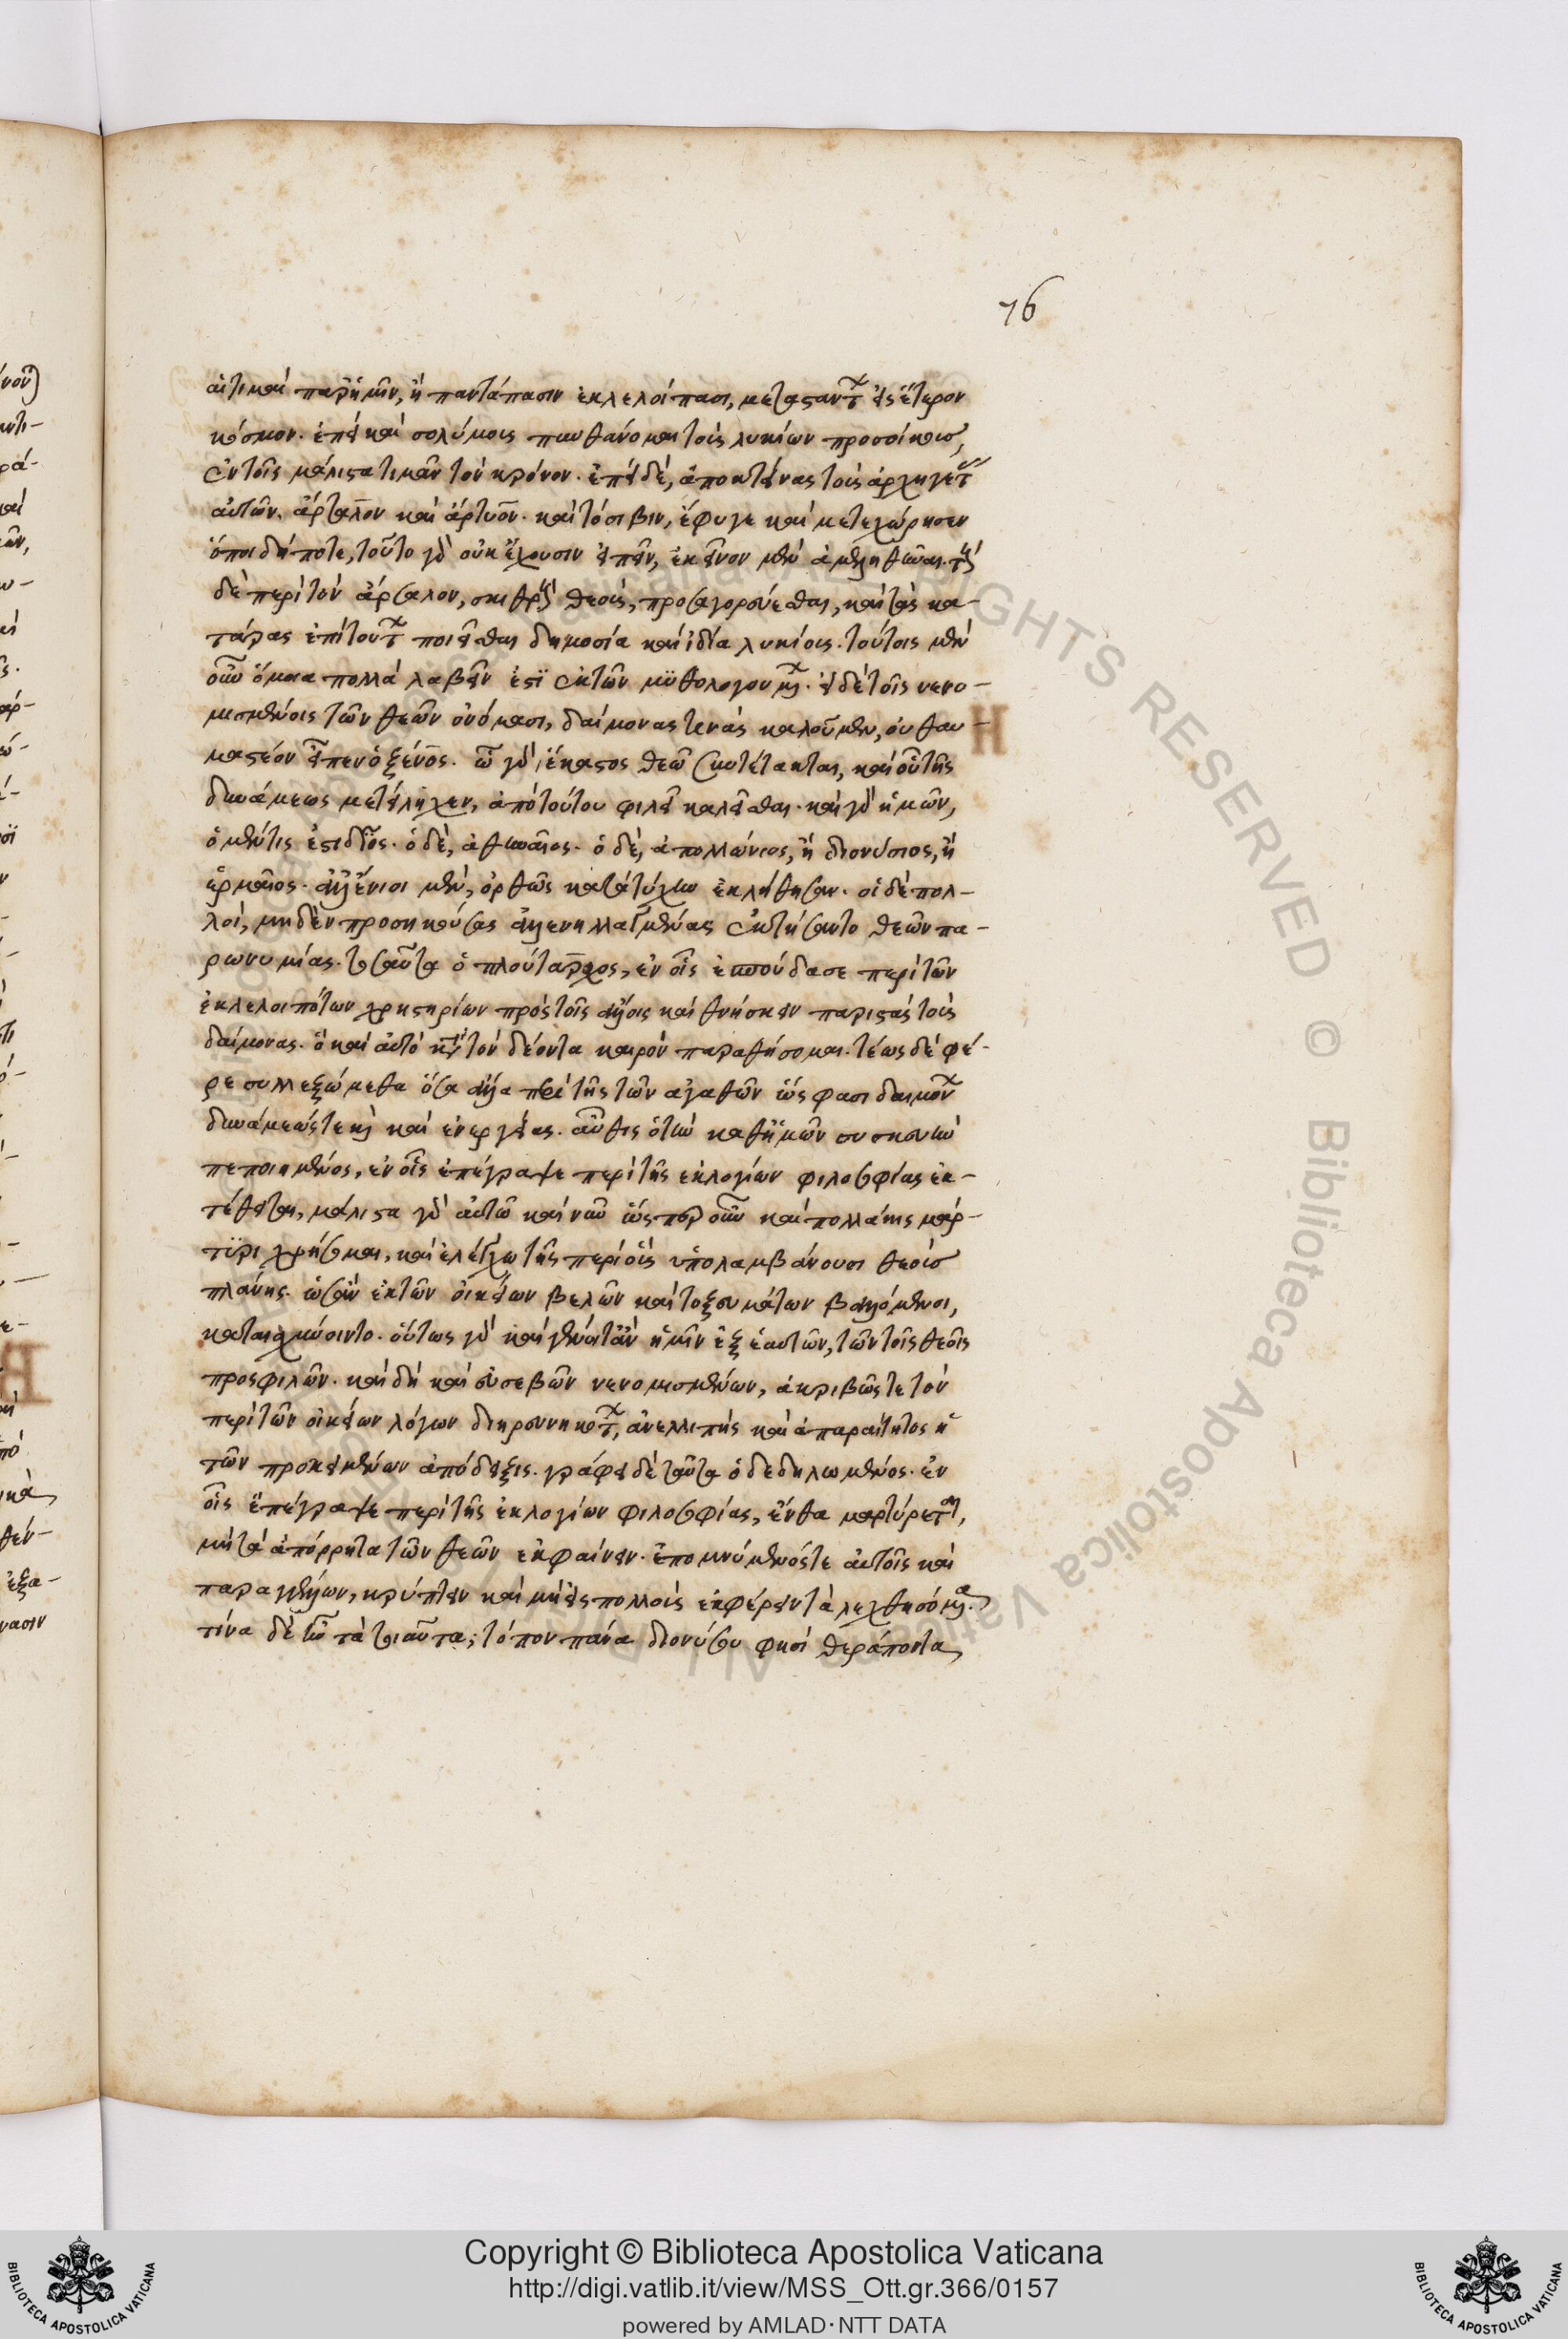 76
αἱ τιμαὶ παρ' ἡμῖν, ἢ παντάπασιν ἐκλελοίπασι, μεταστάντων εἰς ἕτερον
κόσμον. ἐπεὶ καὶ σολύμους πυνθάνομαι τοὺς λυκίων προσοίκους,
ἐν τοῖς μάλιστα τιμᾶν τὸν κρόνον. ἐπεὶ δὲ, ἀποκτείνας τοὺς ἄρχοντας
αὐτῶν, ἄρσαλον καὶ ἄρτυον. καὶ τόσιβιν, ἔφυγε καὶ μετεχώρησεν
ὅποι δήποτε, τοῦτο γὰρ οὐκ ἔχουσιν εἰπεῖν, ἐκεῖνον μὲν ἀμεληθῆναι. τοὺς
δὲ περὶ τὸν ἄρσαλον, σκιθροὺς θεοὺς, προσαγορεύεσθαι, καὶ τὰς κα-
τάρας ἐπὶ τούτων ποιεῖσθαι δημοσία καὶ ἰδία λυκίους. τούτοις μὲν
οὖν ὅμοια πολλὰ λαβεῖν ἐστὶ ἐκ τῶν μυθολογουμένων. εἰ δὲ τοῖς νενο-
μισμένοις τῶν θεῶν ὀνόμασι, δαίμονας τινὰς καλοῦμεν, οὐ θαυ-
μαστέον εἶπεν ὁ ξένος. ᾧ γὰρ ἕκαστος θεῷ συντέτακται, καὶ οὗ τῆς
δυνάμεως μετείληχεν, ἀπὸ τούτου φιλεῖ καλεῖσθαι. καὶ γὰρ ἡμῶν,
ὁ μέν τις ἐστὶ δῖος. ὁ δὲ, ἀθηναῖος. ὁ δὲ, ἀπολλώνιος, ἢ διονύσιος, ἢ
ἑρμαῖος. ἀλλ' ἔνιοι μὲν, ὀρθῶς κατὰ τύχην ἐκλήθησαν. οἱ δὲ πολ-
λοὶ, μηδὲν προσηκούσας ἀλλ' ἐνηλλαγμένας ἐκτήσαντο θεῶν πα-
ρωνυμίας. τοσαῦτα ὁ πλούταρχος, ἐν οἷς ἐσπούδασε περὶ τῶν
ἐκλελοιπότων χρηστηρίων πρὸς τοῖς ἄλλοις καὶ θνήσκειν παριστὰς τοὺς
δαίμονας. ὃ καὶ αὐτὸ κατὰ τὸν δέοντα καιρὸν παραθήσομαι. τέως δὲ φέ-
ρε συλλεξώμεθα ὅσα ἄλλα περὶ τῆς τῶν ἀγαθῶν ὥς φασι δαιμόνων
δυνάμεώς τε καὶ ἐνεργείας. αὖθις ὁ τὴν καθ' ἡμῶν συσκευὴν
πεποιημένος, ἐν οἷς ἐπέγραψε περὶ τῆς ἐκ λογίων φιλοσοφίας ἐκ-
τέθειται, μάλιστα γὰρ αὐτῷ καὶ νῦν ὥσπερ οὖν καὶ πολλάκις μάρ-
τυρι χρήσομαι, καὶ ἐλέγχω τῆς περὶ οὓς ὑπολαμβάνουσι θεοὺς
πλάνης. ὡς ἂν ἐκ τῶν οἰκείων βελῶν καὶ τοξευμάτων βαλλόμενοι,
καταισχύνοιντο. οὕτως γὰρ καὶ γένοιτ' ἂν ἡμῖν ἐξ ἑαυτῶν, τῶν τοῖς θεοῖς
προσφιλῶν. καὶ δὴ καὶ εὐσεβῶν νενομισμένων, ἀκριβῶς τε τὸν
περὶ τῶν οἰκείων λόγων διηρευνηκότων, ἀνελλιπὴς καὶ ἀπαραίτητος ἡ
τῶν προκειμένων ἀπόδειξις. γράφει δὲ ταῦτα ὁ δεδηλωμένος. ἐν
οἷς ἐπέγραψε περὶ τῆς ἐκ λογίων φιλοσοφίας, ἔνθα μαρτύρεται,
μὴ τὰ ἀπόρρητα τῶν θεῶν ἐκφαίνειν. ἐπομνύμενός τε αὐτοῖς καὶ
παραγγέλλων, κρύπτειν καὶ μὴ εἰς πολλοὺς ἐκφέρειν τὰ λεχθησόμενα.
τίνα δὲ ἦν τὰ τοιαῦτα; τόπον πάνα διονύσου φησὶ θεράποντα
Η
Copyright © Biblioteca Apostolica Vaticana
http://digi.vatlib.it/view/MSS_Ott.gr.366/0157
powered by AMLAD·NTT DATA